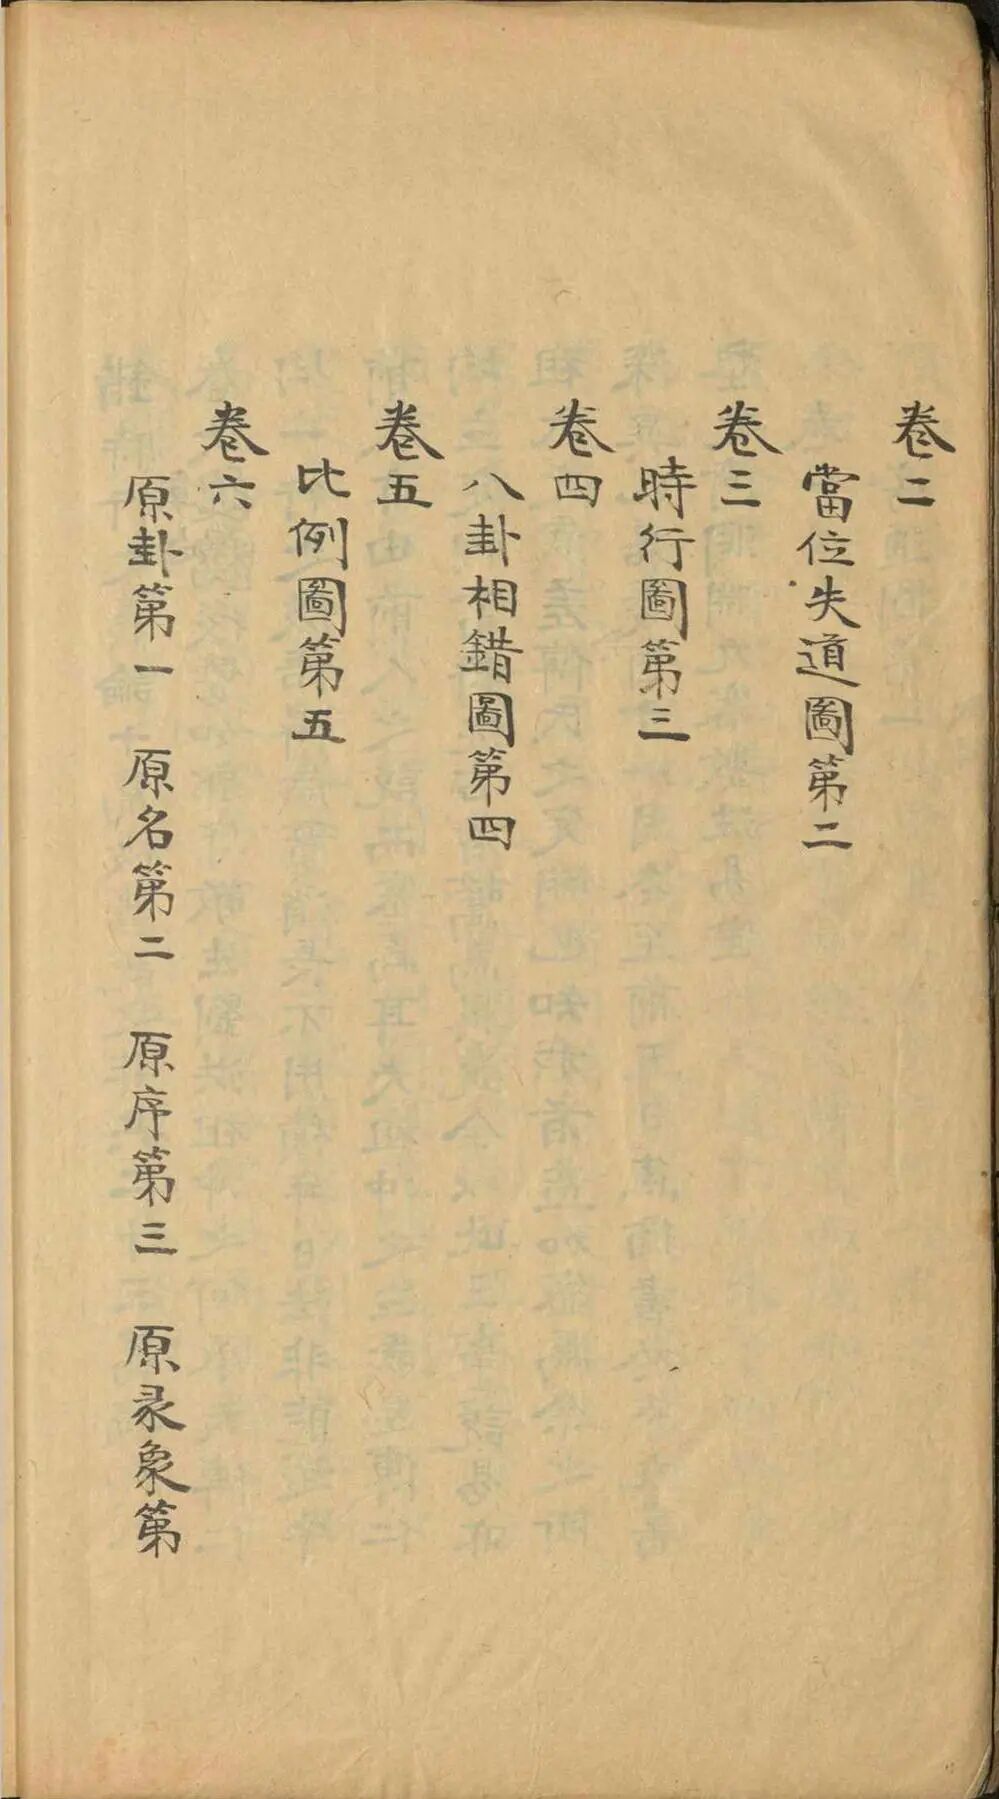 卷二
當位失道圖第二
卷三
時行圖第三
卷四
八卦相錯圖第四
卷五
比例圖第五
卷六
原卦第一　原名第二　原序第三　原彖象第